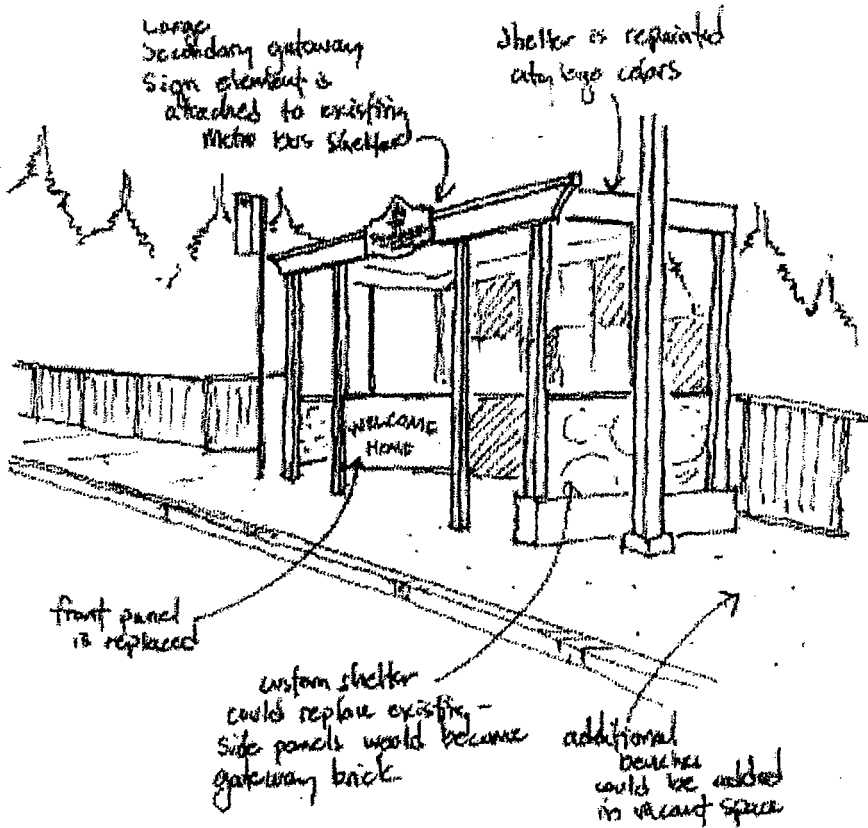 Large
Secondary gateway
Sign element is
attached to existing
Metro bus shelter
shelter is repainted
logo colors
WELCOME
HOME
front panel
is replaced
custom shelter
could replace existing -
side panels would become
gateway brick
additional
benches
could be added
in vacant space